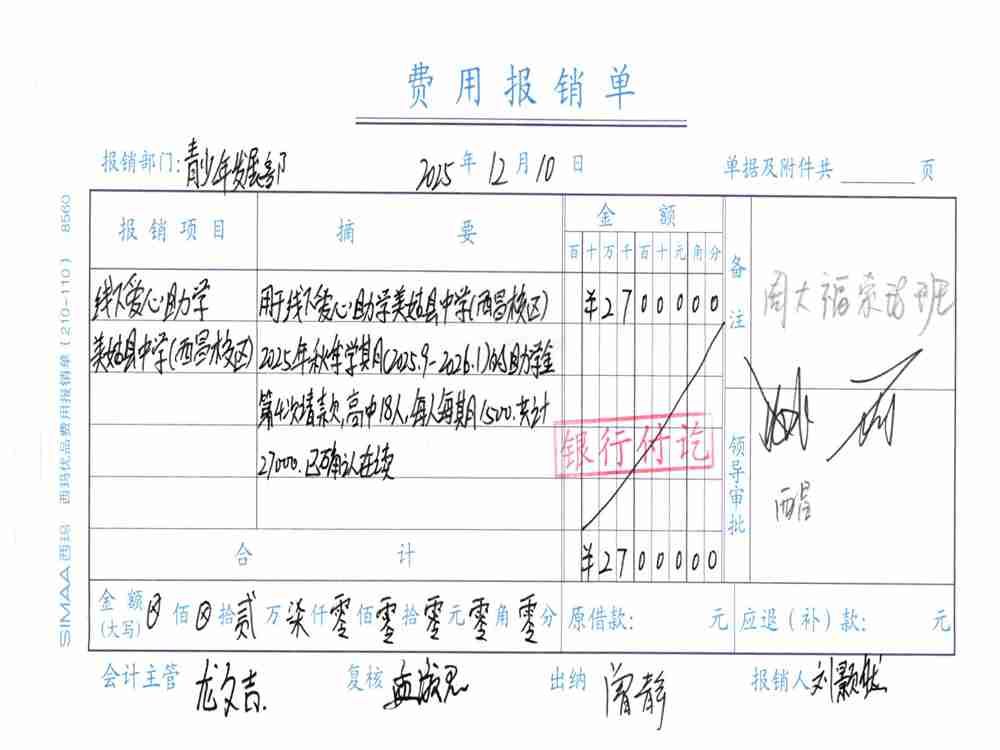 费用报销单
报销部门:青少年发展部 2025年12月10日 单据及附件共 页
报销项目 摘要 金额 备注
百十万千百十元角分
线下爱心助学 用于线下爱心助学美姑县中学(西昌校区) ¥2700000 周大福 班
美姑县中学(西昌校区) 2025年秋季学期(2025.9-2026.1)的助学金
第4次请款,高中18人,每人每期1500.共计
27000.已确认在读
银行付讫
领导审批
西昌
合计 ¥2700000
金额(大写) ⊗佰⊗拾贰万柒仟零佰零拾零元零角零分 原借款: 元 应退(补)款: 元
会计主管 龙文吉 复核 孟 出纳 曾静 报销人 刘颢
SIMAA西玛 西玛优品费用报销单(210-110) 8560